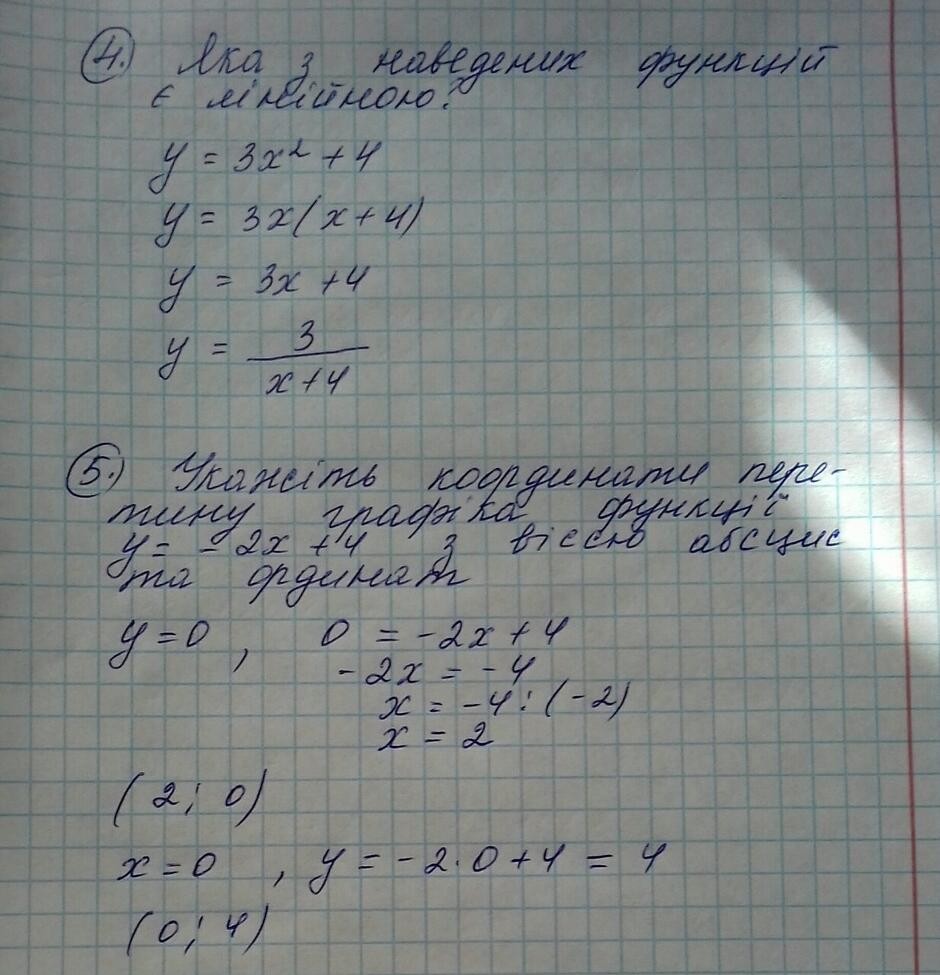 4. Яка з наведених функцій
є лінійною?
y = 3x² + 4
y = 3x(x + 4)
y = 3x + 4
y = 3/(x + 4)
5. Укажіть координати пере-
тину графіка функції
y = -2x + 4 з віссю абсцис
та ординат
y = 0 , 0 = -2x + 4
-2x = -4
x = -4 : (-2)
x = 2
(2; 0)
x = 0 , y = -2·0 + 4 = 4
(0; 4)